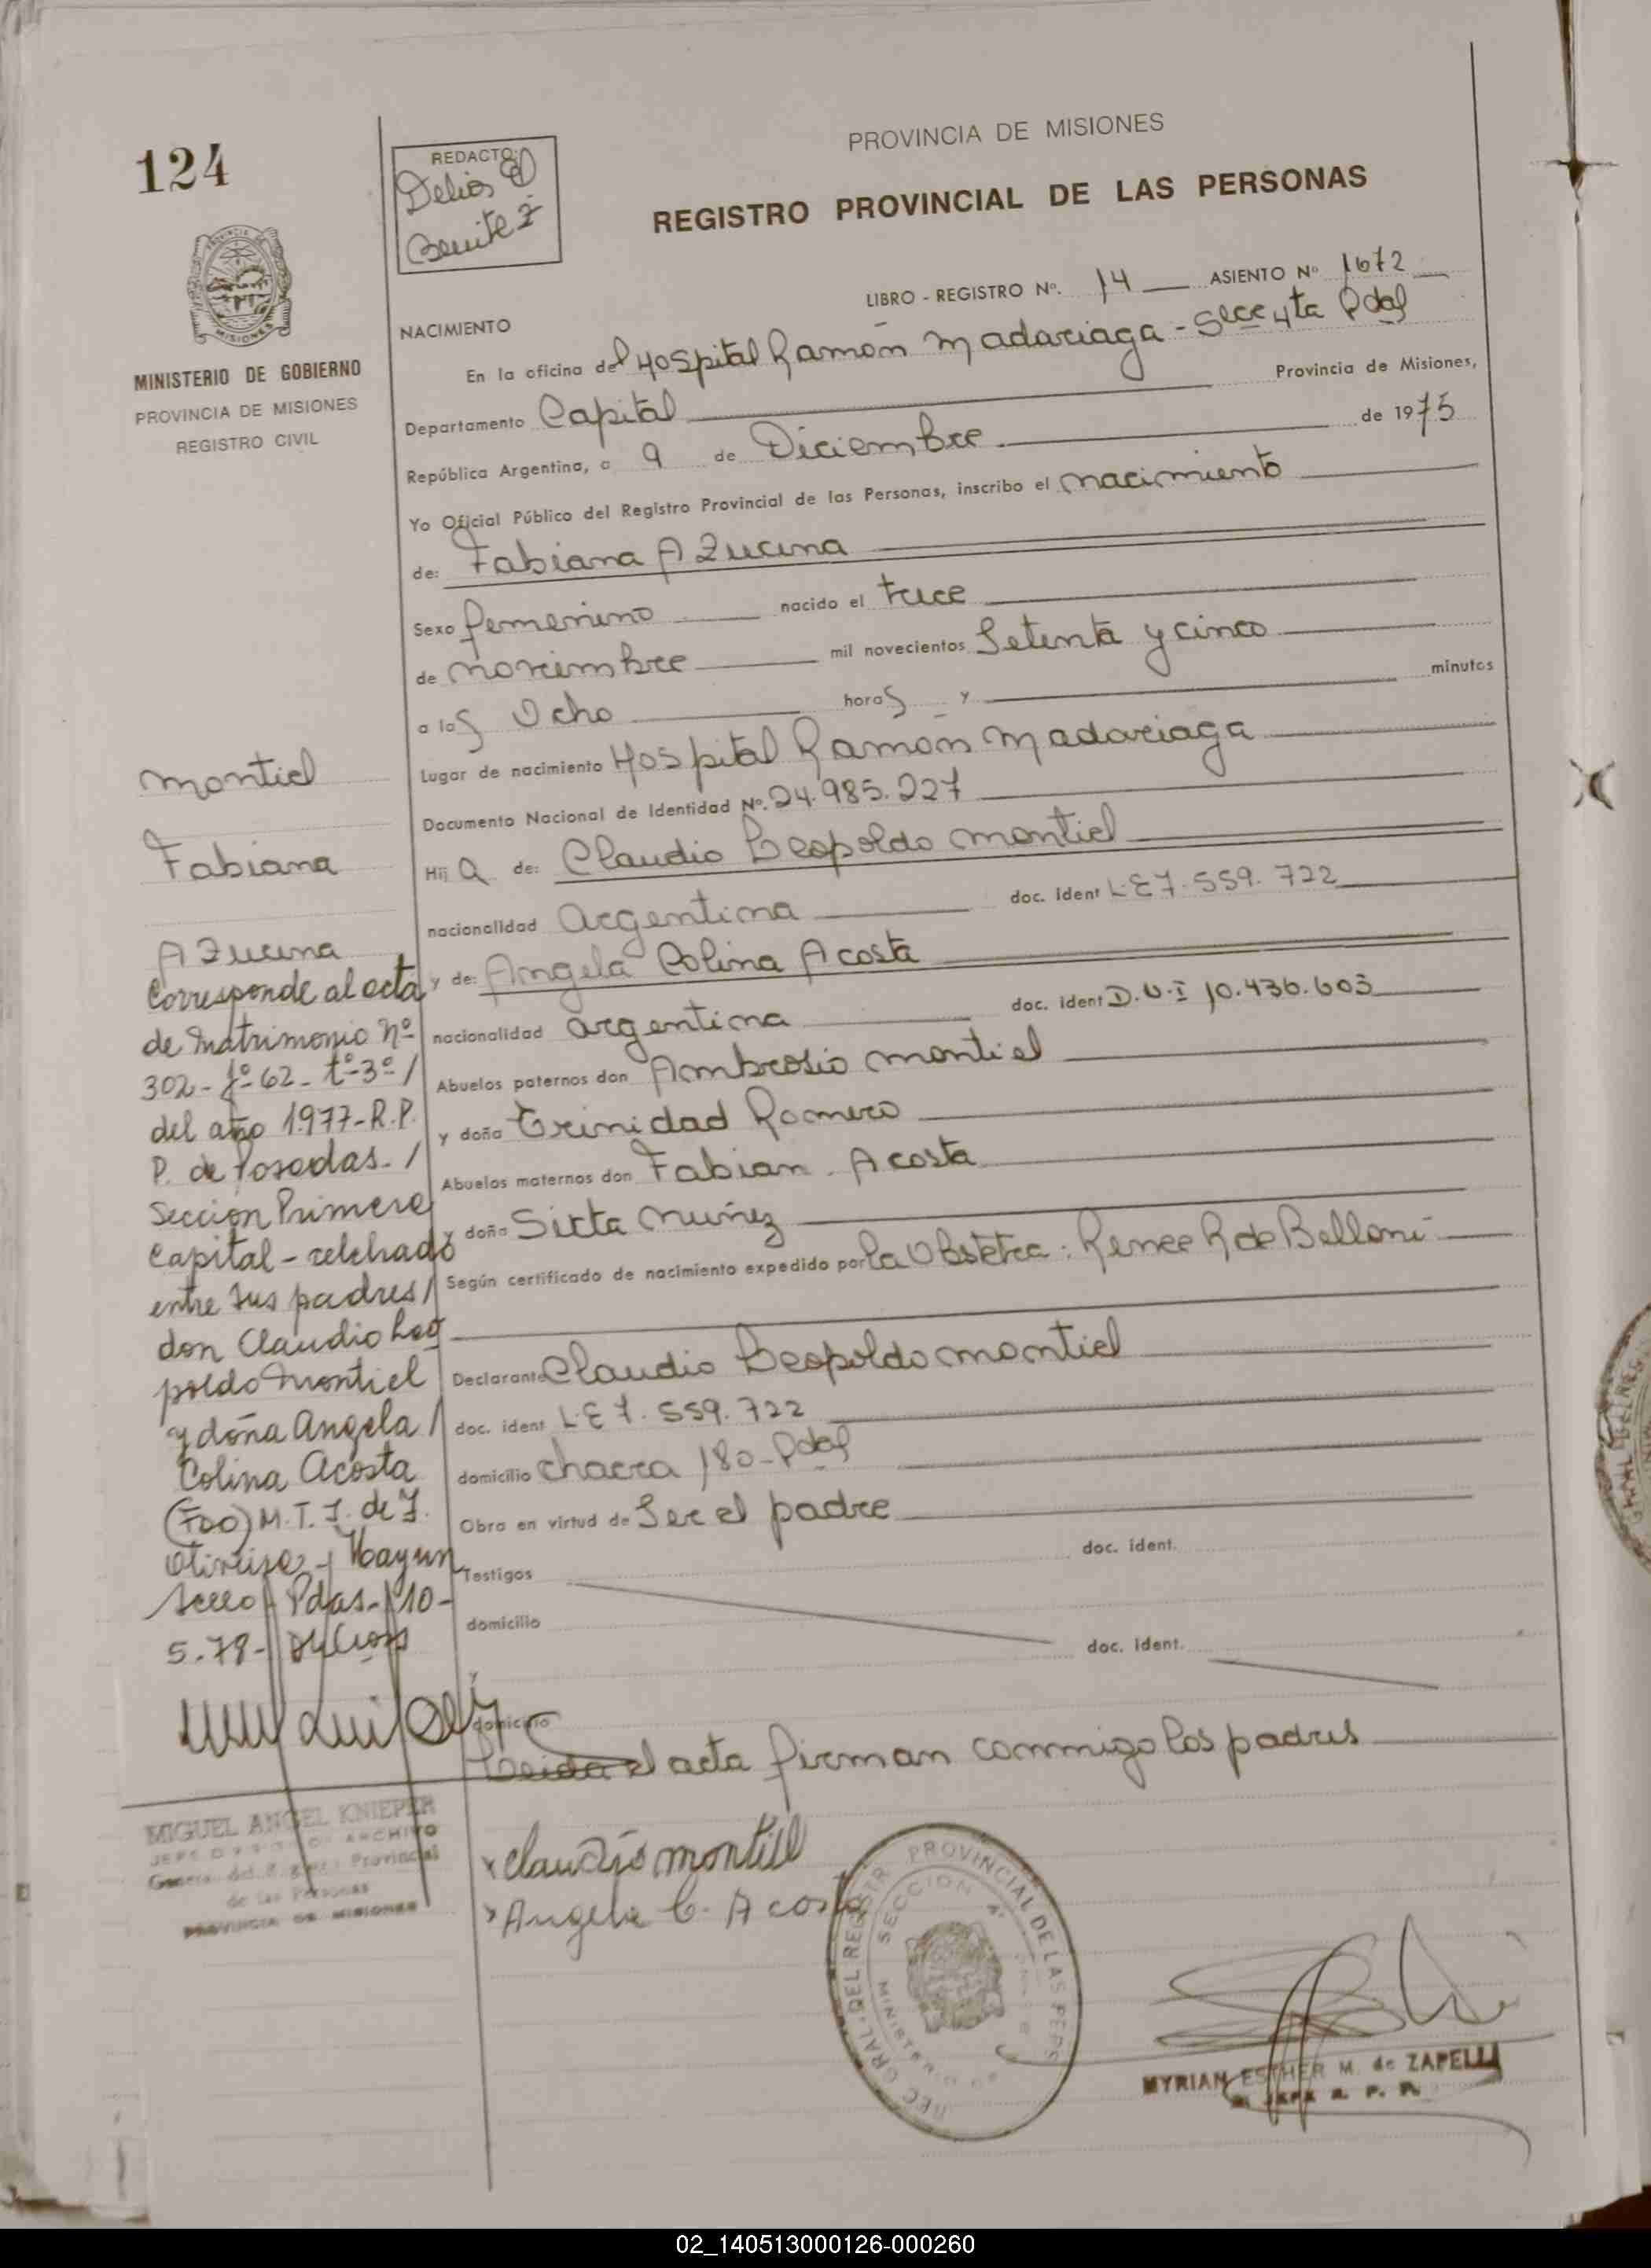 124
REDACTO:
Delios
Benitez
PROVINCIA DE MISIONES
REGISTRO PROVINCIAL DE LAS PERSONAS
LIBRO - REGISTRO Nº. 14 ASIENTO Nº 1672
MINISTERIO DE GOBIERNO
PROVINCIA DE MISIONES
REGISTRO CIVIL
NACIMIENTO
En la oficina del Hospital Ramón Madariaga - Secc 4ta Pdas
Departamento Capital Provincia de Misiones,
República Argentina, a 9 de Diciembre de 1975
Yo Oficial Público del Registro Provincial de las Personas, inscribo el nacimiento
de: Fabiana Azucena
Sexo femenino nacido el trece
de noviembre mil novecientos Setenta y cinco
a las Ocho horas y minutos
Lugar de nacimiento Hospital Ramon Madariaga
Documento Nacional de Identidad Nº. 24.985.227
Hija de: Claudio Leopoldo Montiel
nacionalidad Argentina doc. ident L.E 7.559.722
y de: Angela Colina Acosta
nacionalidad argentina doc. ident D.U.I 10.436.603
Abuelos paternos don Ambrosio Montiel
y doña Trinidad Romero
Abuelos maternos don Fabian Acosta
y doña Sixta Nuñez
Según certificado de nacimiento expedido por la Obstetra: Renee R de Belloni
Declarante Claudio Leopoldo Montiel
doc. ident L.E 7.559.722
domicilio Chacra 180 - Pdas
Obra en virtud de Ser el padre
Testigos doc. ident.
domicilio
y doc. ident.
domicilio
Leida el acta firman conmigo los padres
Claudio Montiel
Angela C. Acosta
Montiel
Fabiana
Azucena
Corresponde al acta
de Matrimonio Nº
302 - fº 62 - tº 3º /
del año 1977 - R.P.
P. de Posadas. /
Seccion Primera
Capital - celebrado
entre sus padres /
don Claudio Leo
poldo Montiel
y doña Angela /
Colina Acosta
(FDO) M. T. J. de J.
Hay un
sello Pdas - 10 -
5.78 -
MIGUEL ANGEL KNIEPER
JEFE DIVISION ARCHIVO
General del Registro Provincial
de las Personas
PROVINCIA DE MISIONES
GRAL. DEL REGISTR PROVINCIAL DE LAS PERS
SECCION 4ª
MINISTERIO DE
MYRIAN ESTHER M. de ZAPELLI
JEFA R. P. P.
02_140513000126-000260